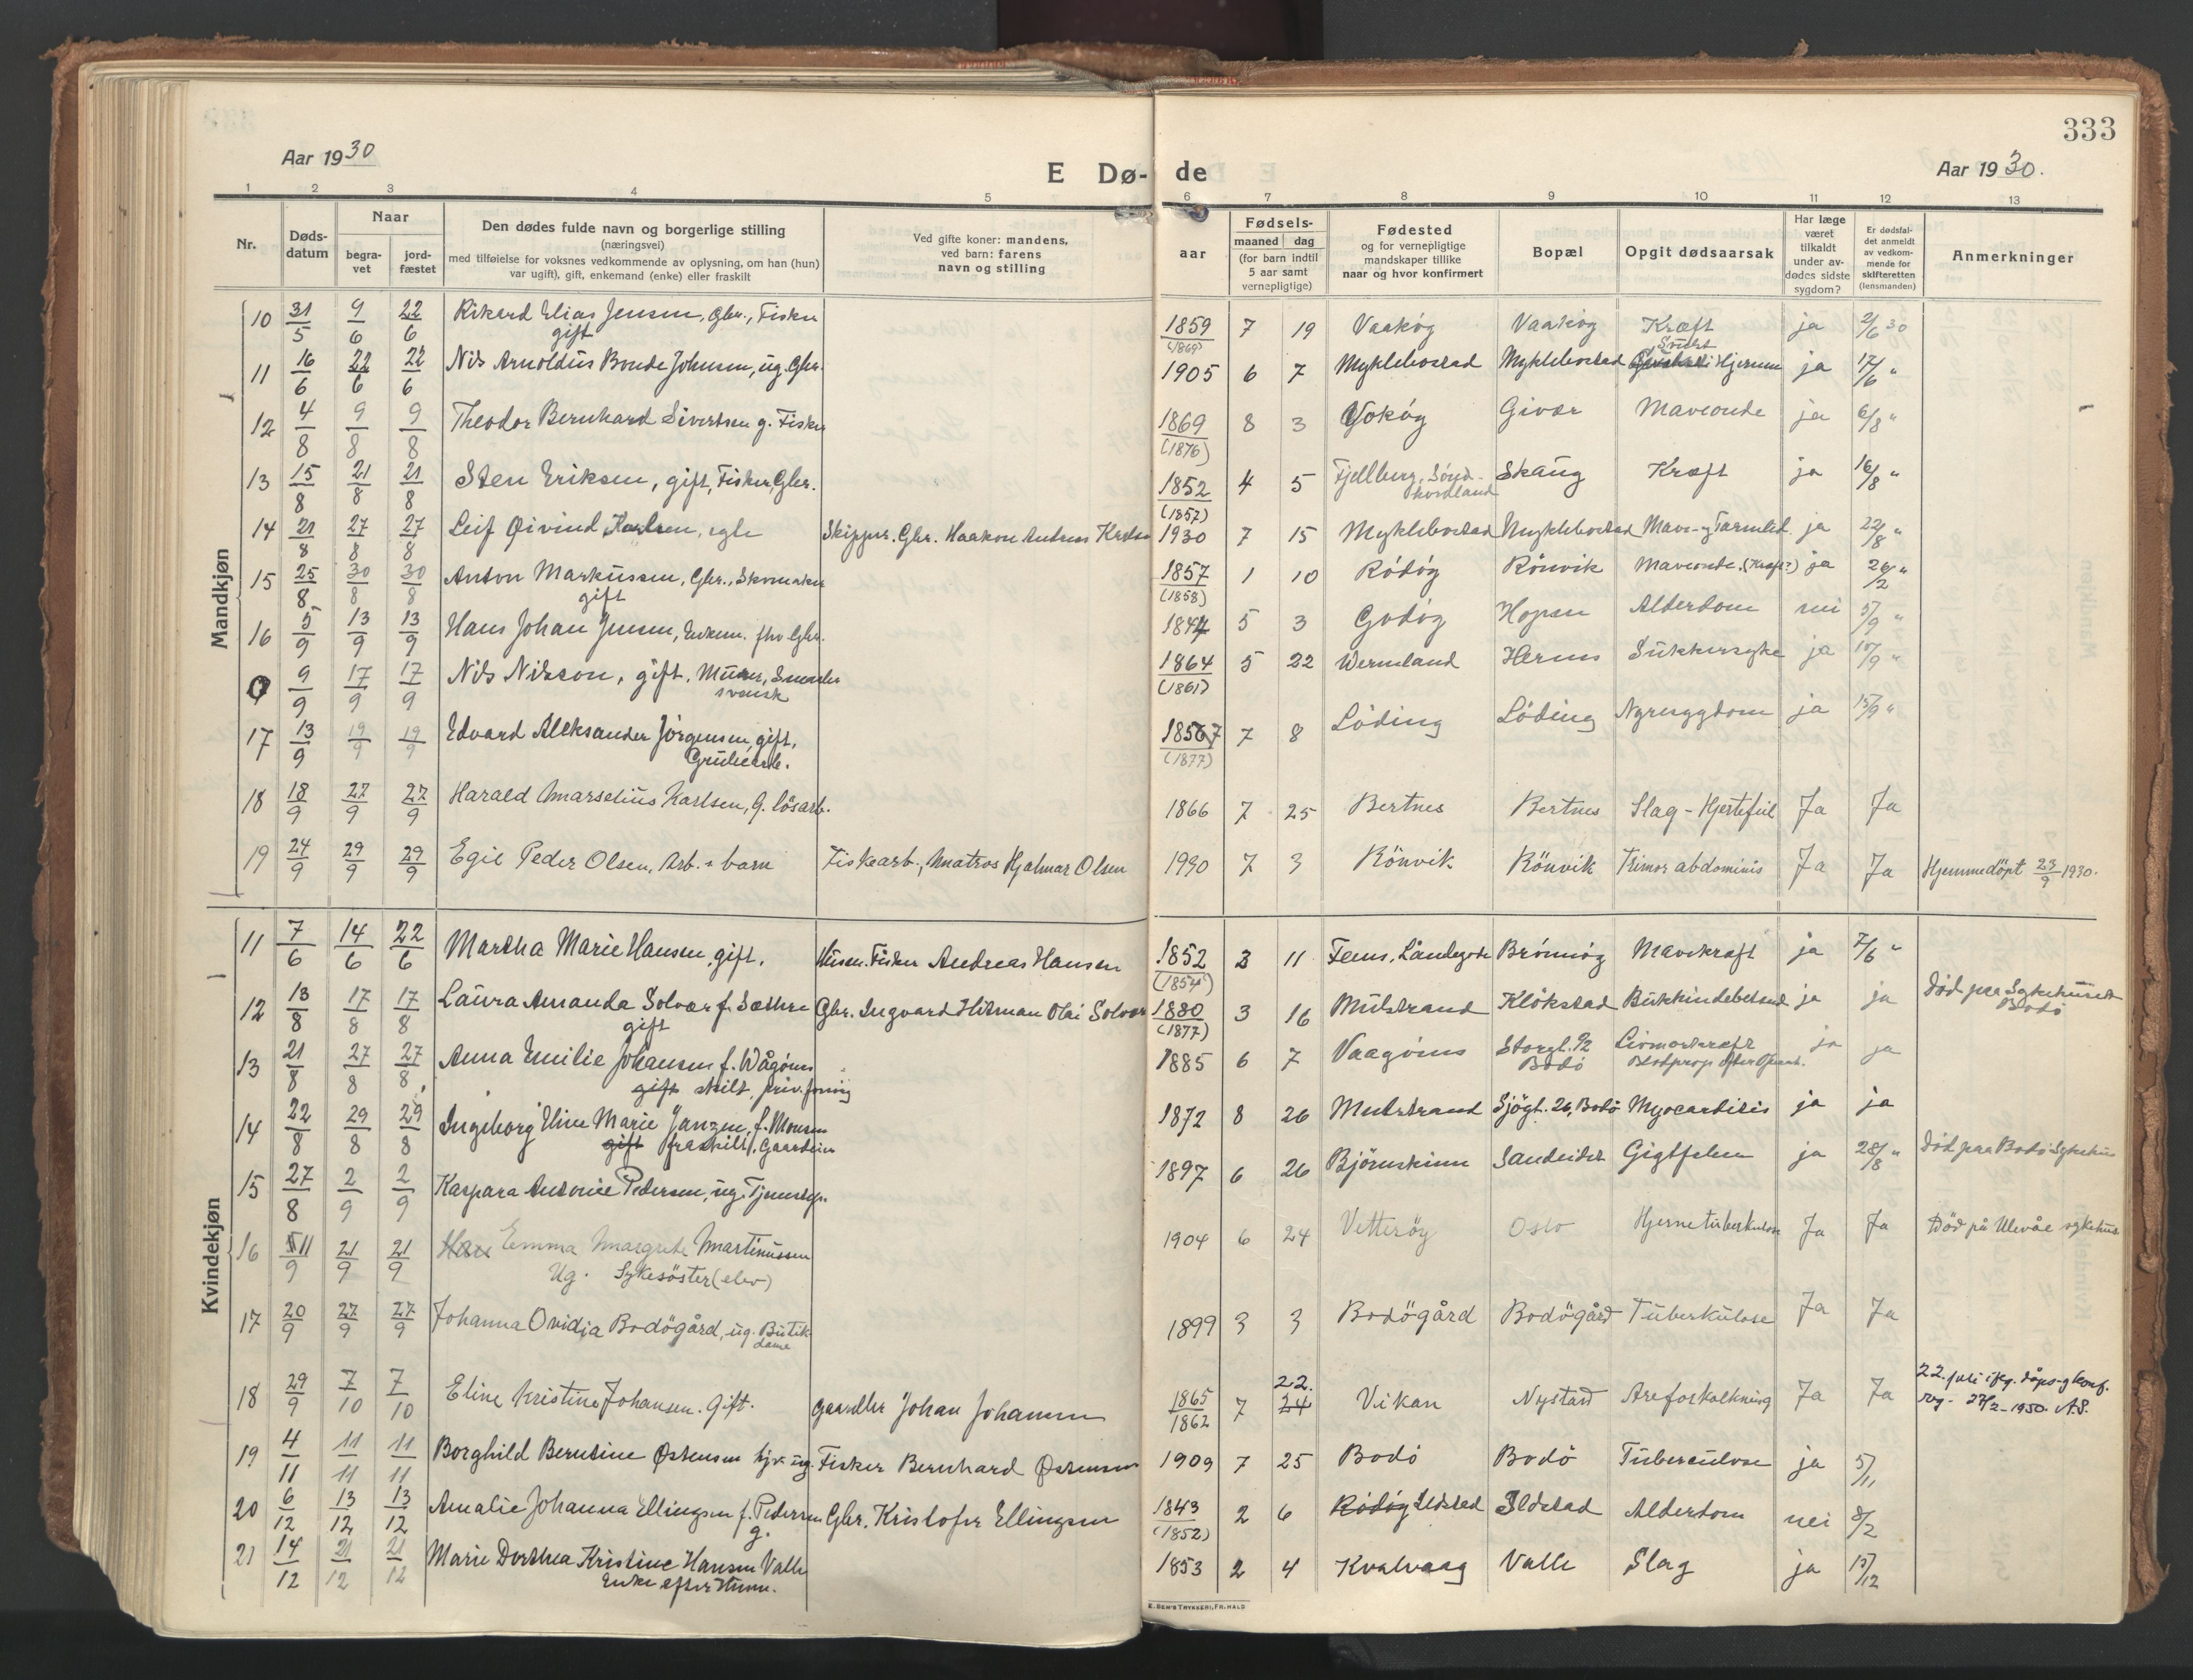 333
Aar 1930
E Dø-de
Aar 1930.
1 2 3 4 5 6 7 8 9 10 11 12 13
Nr.
Døds-
datum
Naar
begra-
vet
jord-
fæstet
Den dødes fulde navn og borgerlige stilling
(næringsvei)
med tilføielse for voksnes vedkommende av oplysning, om han (hun)
var ugift), gift, enkemand (enke) eller fraskilt
Ved gifte koner: mandens,
ved barn: farens
navn og stilling
Fødsels-
aar
maaned dag
(for barn indtil
5 aar samt
vernepligtige)
Fødested
og for vernepligtige
mandskaper tillike
naar og hvor konfirmert
Bopæl
Opgit dødsaarsak
Har læge
været
tilkaldt
under av-
dødes sidste
sygdom?
Er dødsfal-
det anmeldt
av vedkom-
mende for
skifteretten
(lensmanden)
Anmerkninger
Mandkjøn
10 31/5 9/6 22/6 Rikard Elias Jensen, Gbr., Fisker 1859 7 19 Vaakøg Vaakøg Kræft ja 2/6 30
gift (1869)
11 16/6 22/6 22/6 Nils Arnoldus Bonde Johnsen, ug. Gbr. 1905 6 7 Myklebostad Myklebostad Svulst i Hjernen ja 17/6 "
12 4/8 9/8 9/8 Theodor Bernhard Sivertsen g. Fisker 1869 8 3 Givær Mavonde ja 6/8 "
(1876)
13 15/8 21/8 21/8 Sten Eriksen, gift, Fisker, Gbr. 1852 4 5 Fjellberg, Sönd- Skaug Kræft ja 16/8 "
(1857) hordland
14 21/8 27/8 27/8 Leif Øivind Karlsen, egte Skipper. Gbr. Haakon Andreas Karlsen 1930 7 15 Myklebostad Myklebostad Mave- og Tarmlid. ja 22/8 "
15 25/8 30/8 30/8 Anton Markussen, Gbr., Skomaker 1857 1 10 Rödöy Rönvik Mavonde. (Kræft?) ja 26/2 "
gift (1858)
16 5/9 13/9 13/9 Hans Johan Jensen, Enkem. fhv. Gbr. 1844 5 3 Godöy Hopen Alderdom nei 5/9 "
0 9/9 17/9 17/9 Nils Nilsson, gift, Murer, Svensker 1864 5 22 Wermland Hernes Sukkersyke ja 10/9 "
svensk (1861)
17 13/9 19/9 19/9 Edvard Aleksander Jörgensen, gift, 1857 7 8 Löding Löding Nyresygdom ja 15/9 "
Grubearb. (1877)
18 18/9 27/9 27/9 Harald Marselius Karlsen, G. lösarb. 1866 7 25 Bertnes Bertnes Slag - Hjertefeil Ja Ja
19 24/9 29/9 29/9 Egil Peder Olsen, Arb.s barn Fiskearb., Matros Hjalmar Olsen 1930 7 3 Rönvik Rönvik Tumor abdominis Ja Ja Hjemmedöpt 23/9 1930.
Kvindekjøn
11 7/6 14/6 22/6 Martha Marie Hansen, gift. Husm. Fisker Andreas Hansen 1852 3 11 Fenes, Landegode Brönnög Mavekræft ja 7/6 "
(1854)
12 13/8 17/8 17/8 Laura Amanda Solvær f. Sæthre Gbr. Ingvard Hilman Olai Solvær 1880 3 16 Mulstrand Klökstad Bukhindebetend. ja ja Död paa Sykehuset
gift (1877) Bodö
13 21/8 27/8 27/8 Anna Emilie Johansen f. Wågönes 1885 6 7 Vaagönes Storgt. 92 Livmorkræft ja ja
gift skilt, priv. forsörg Bodö Blodprop efter Operat.
14 22/8 29/8 29/8 Ingeborg Eline Marie Janzen, f. Monsen 1872 8 26 Mulstrand Sjögt. 26, Bodö Myocarditis ja ja
gift fraskilt
15 27/8 2/9 2/9 Kaspara Antonie Pedersen, ug. Tjenestep. 1897 6 26 Björnskinn Sandeidet Gigtfeber ja 28/8 " Död paa Bodö Sykehus
16 11/9 21/9 21/9 Emma Margrete Martinussen 1904 6 24 Vetteröy Oslo Hjernetuberkulose Ja Ja Död på Ulevåe sykehus
Ug. Sykesöster (elev)
17 20/9 27/9 27/9 Johanna Ovidja Bodögård, ug. Butik- 1899 3 3 Bodögård Bodögård Tuberkulose Ja Ja
dame
18 29/9 7/10 7/10 Eline Kristine Johansen. Gift. Gaardbr Johan Johansen 1865 7 24 Vikan Nystad Areforkalkning Ja Ja 22. juli iflg. dåps- og konf.
1862 22. reg. 27/2-1950. A.S.
19 4/11 11/11 11/11 Borghild Berntine Østensen hjv. ug. Fisker Bernhard Østensen 1909 7 25 Bodö Bodö Tuberculose ja 5/11
20 6/12 13/12 13/12 Amalie Johanna Ellingsen f. Pedersen Gbr. Kristofer Ellingsen 1843 2 6 Rödöy Ildstad Ildstad Alderdom nei 8/2
g. (1852)
21 14/12 21/12 21/12 Marie Dorthea Kristine Hansen Valle 1853 2 4 Kvalvaag Valle Slag ja 15/12
Enke efter Husm.
E. SEM'S TRYKKERI, FR. HALD